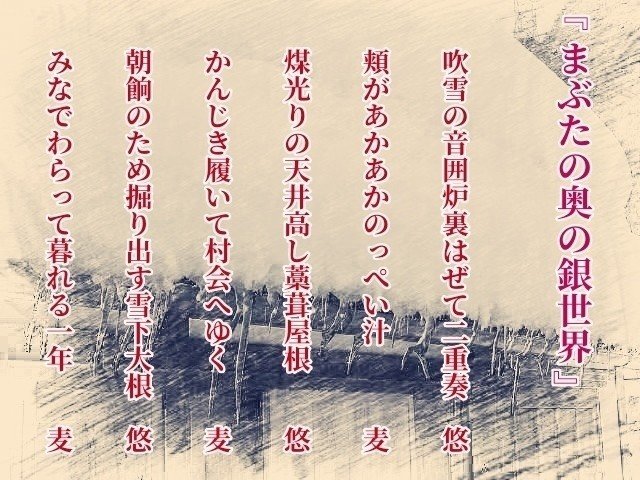 『まぶたの奥の銀世界』
吹雪の音囲炉裏はぜて二重奏 悠
頬があかあかのっぺい汁 麦
煤光りの天井高し藁葺屋根 悠
かんじき履いて村会へゆく 麦
朝餉のため掘り出す雪下大根 悠
みなでわらって暮れる一年 麦